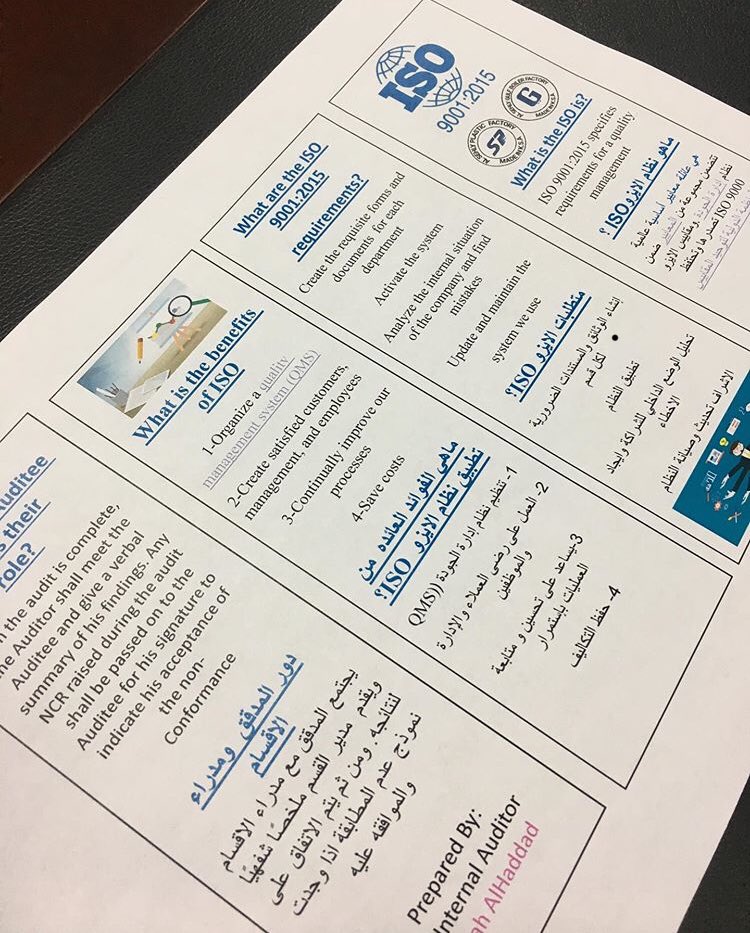 ISO
9001:2015
AL SORAYAI GULF BOILER FACTORY
G
MADE IN K.S.A
PLASTIC FACTORY
SP
MADE IN K.S.A
What is the ISO is?
ISO 9001:2015 specifies
requirements for a quality
management
ما هو نظام الايزو ISO ؟
هي عائلة معايير اساسية عالمية
تتضمن مجموعة من المعايير ضمن
نظام إدارة الجودة ومقاييس الايزو
ISO 9000 تصدرها وتحتفظ
What are the ISO
9001:2015
requirements?
Create the requisite forms and
documents for each
department
Activate the system
Analyze the internal situation
of the company and find
mistakes
Update and maintain the
system we use
متطلبات الايزو ISO؟
إنشاء الوثائق والمستندات الضرورية
لكل قسم
تطبيق النظام
تحليل الوضع الداخلي للشراكة وايجاد
الاخطاء
الإشراف تحديث وصيانة النظام
What is the benefits
of ISO
1-Organize a quality
management system (QMS)
2-Create satisfied customers,
management, and employees
3-Continually improve our
processes
4-Save costs
ماهي الفوائد العائده من
تطبيق نظام الايزو ISO؟
1- تنظيم نظام إدارة الجودة ((QMS
2- العمل على رضى العملاء والإدارة
والموظفين
3-يساعد على تحسين و متابعة
العمليات باستمرار
4- حفظ التكاليف
Auditee
their
role?
the audit is complete,
the Auditor shall meet the
Auditee and give a verbal
summary of his findings. Any
NCR raised during the audit
shall be passed on to the
Auditee for his signature to
indicate his acceptance of
the non-
Conformance
دور المدقق ومدراء
الاقسام
يجتمع المدقق مع مدراء الاقسام
ويقدم مدير القسم ملخصًا شفهيًا
لنتائجه. ومن ثم يتم الاتفاق على
نموذج عدم المطابقة اذا وجدت
والموافقه عليه
Prepared By:
Internal Auditor
AlHaddad